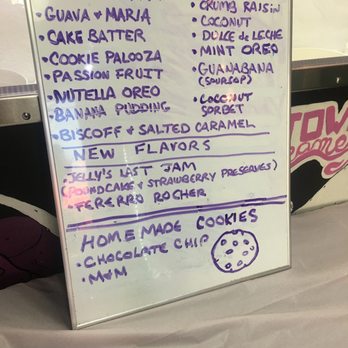 • GUAVA & MARIA
• CAKE BATTER
• COOKIE PALOOZA
• PASSION FRUIT
• NUTELLA OREO
• BANANA PUDDING
• BISCOFF & SALTED CARAMEL
• CRUMB RAISIN
• COCONUT
• DULCE de LECHE
• MINT OREO
• GUANABANA
(SOURSOP)
• COCONUT
SORBET
NEW FLAVORS
• JELLY'S LAST JAM
(POUNDCAKE & STRAWBERRY PRESERVES)
• FERERRO ROCHER
HOME MADE COOKIES
• CHOCOLATE CHIP
• M&M
TOW